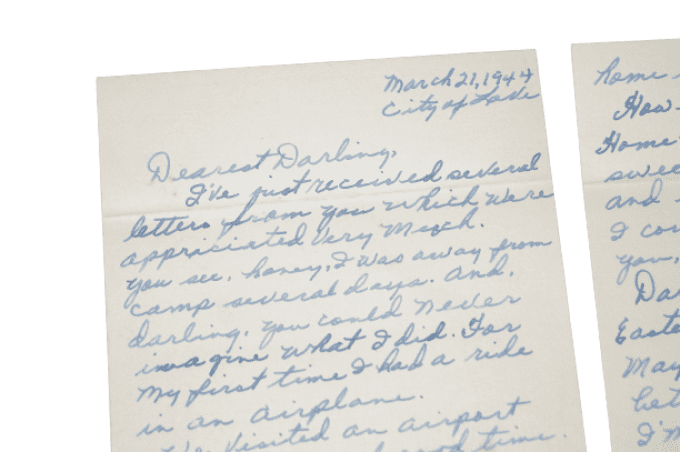 March 21, 1944
City of Love
Dearest Darling,
I've just received several
letters from you which were
appriciated Very Much.
You see, honey, I was away from
camp several days. And,
darling, you could never
imagine what I did. For
my first time I had a ride
in an airplane.
We visited an airport
good time.
home
How
Home
swee
and
I cou
you,
Da
Easte
May
bet
I'm